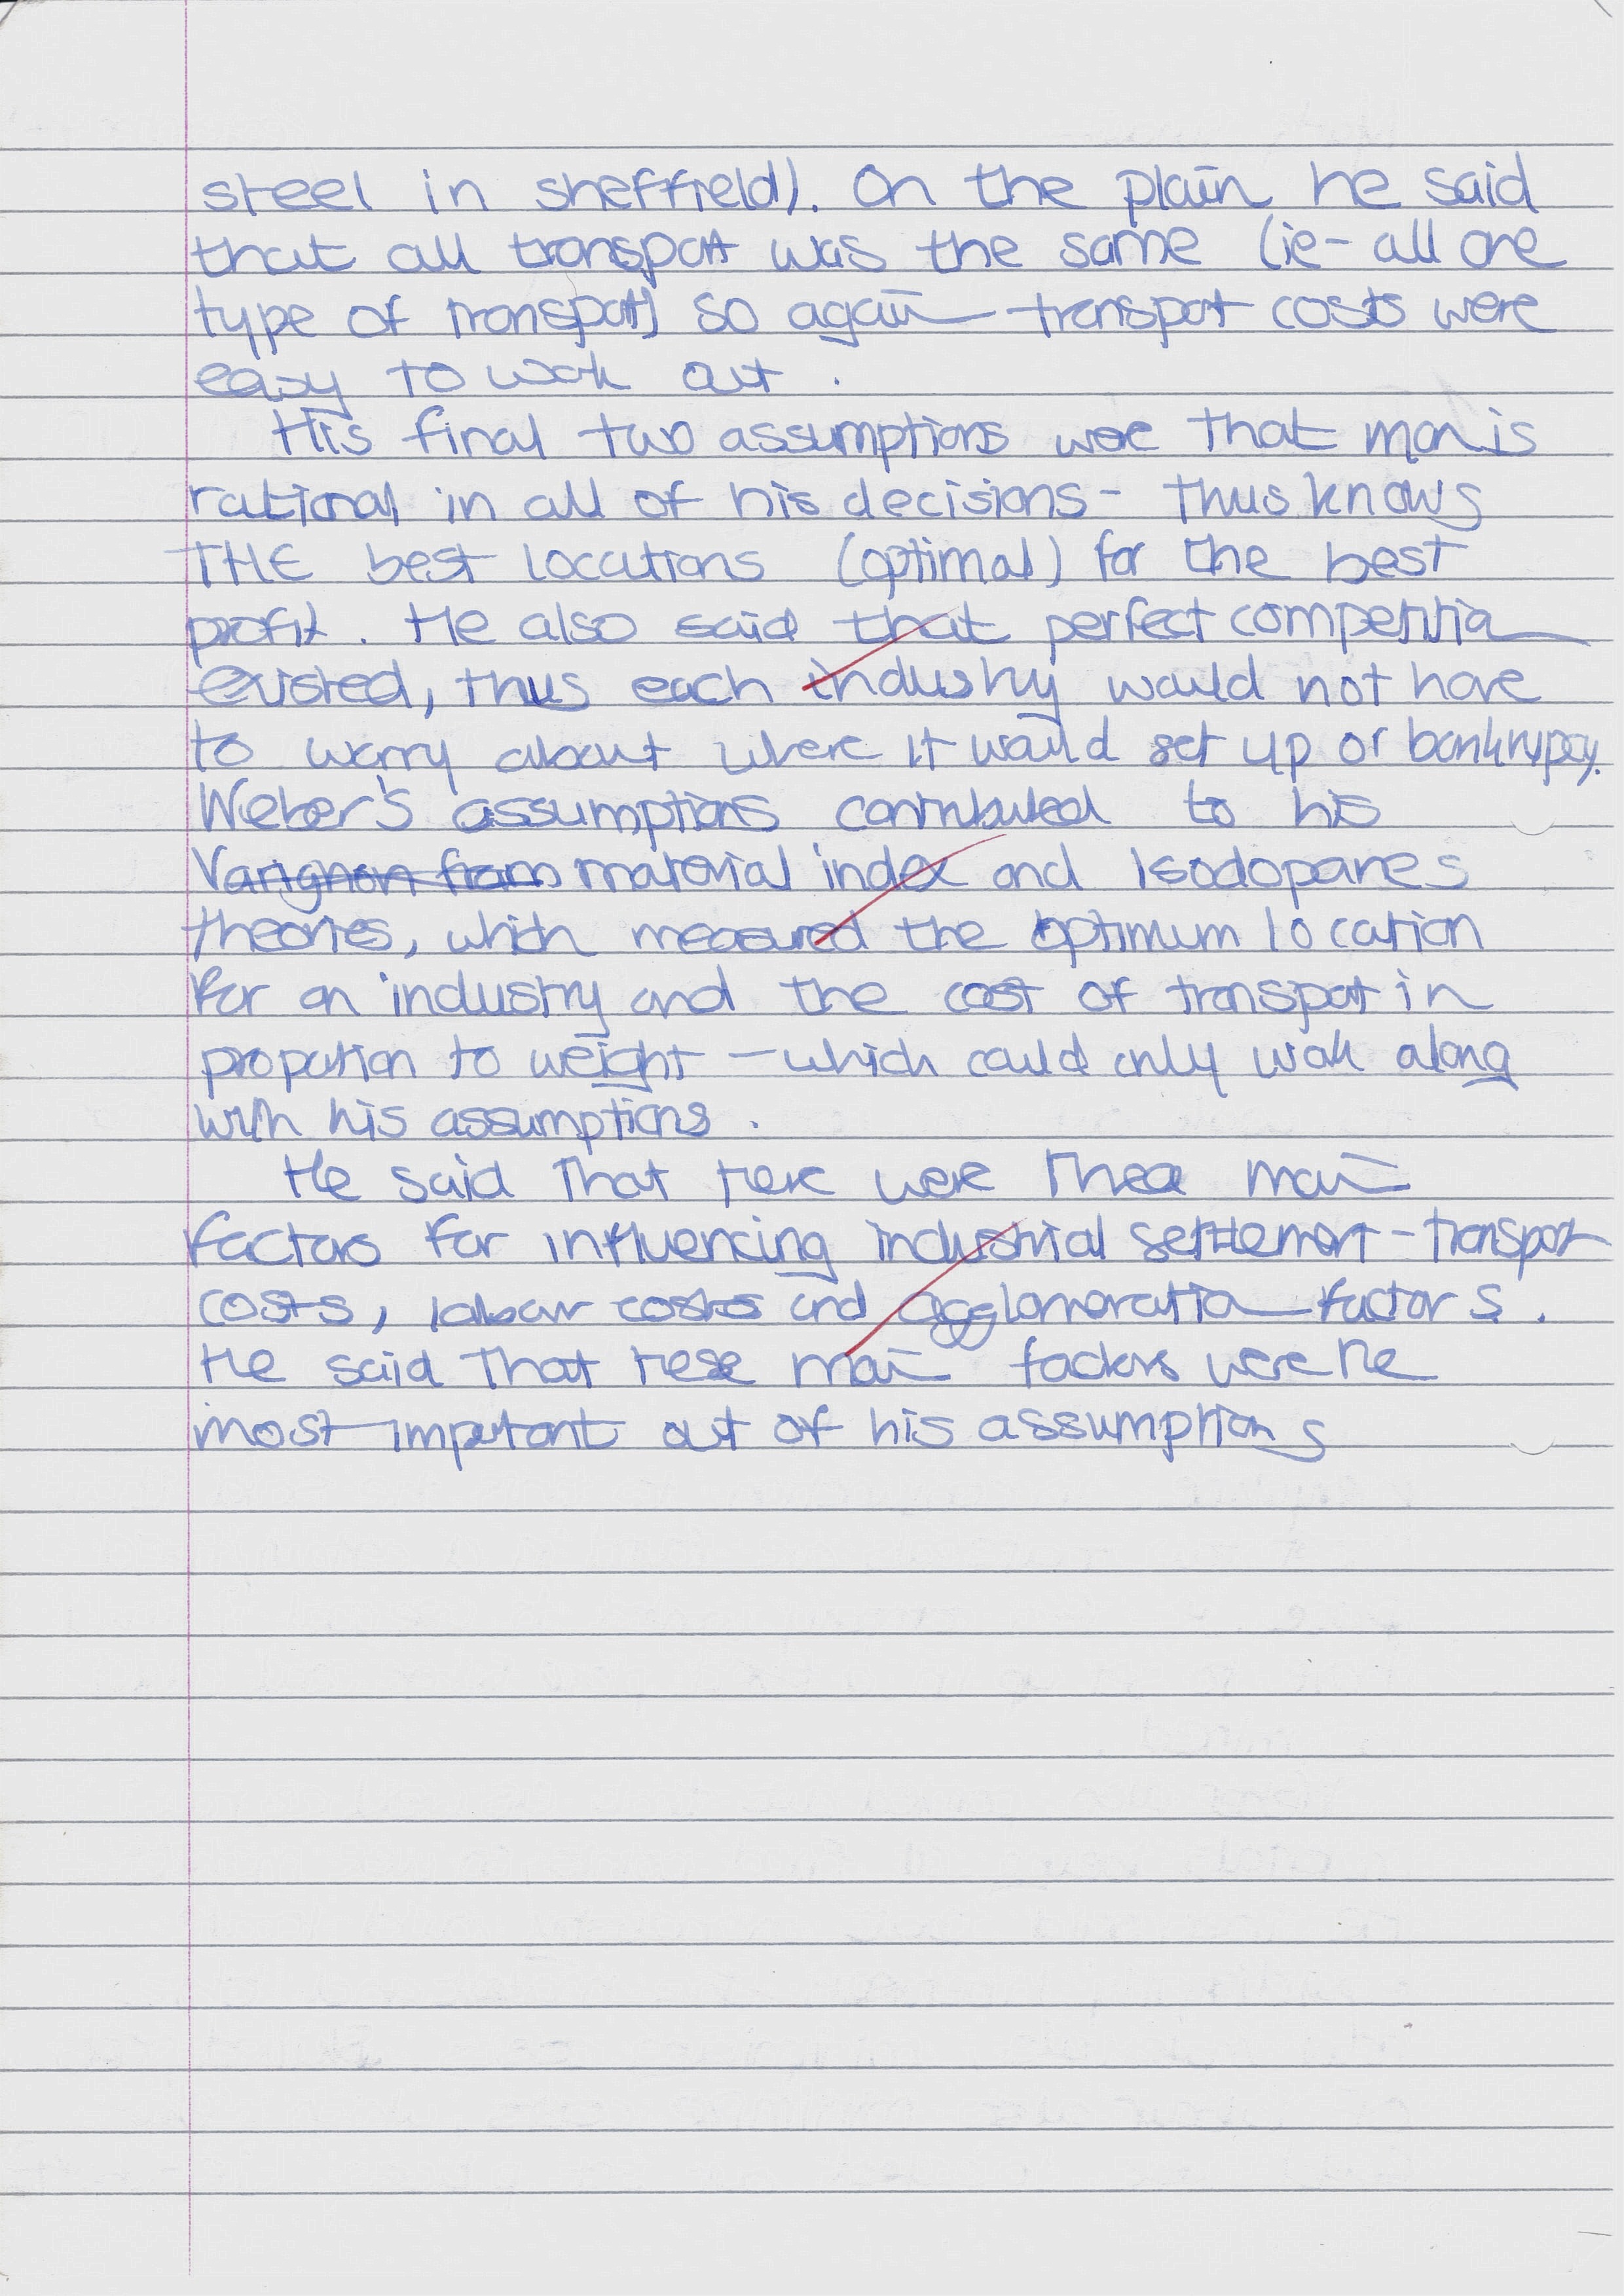 steel in sheffield). On the plain he said
that all transport was the same (ie- all one
type of transport) so again transport costs were
easy to work out .
His final two assumptions were that man is
rational in all of his decisions - thus knows
THE best locations (optimal) for the best
profit. He also said that perfect competition
existed, thus each industry would not have
to worry about where it would set up or bankrupcy.
Weber's assumptions contributed to his
Varignon fram material index and Isodopanes
theories, which measured the optimum location
for an industry and the cost of transport in
proportion to weight - which could only work along
with his assumptions .
He said that there were three main
factors for influencing industrial settlement - transport
costs, labour costs and agglomeration factors .
He said that these main factors were the
most important out of his assumptions